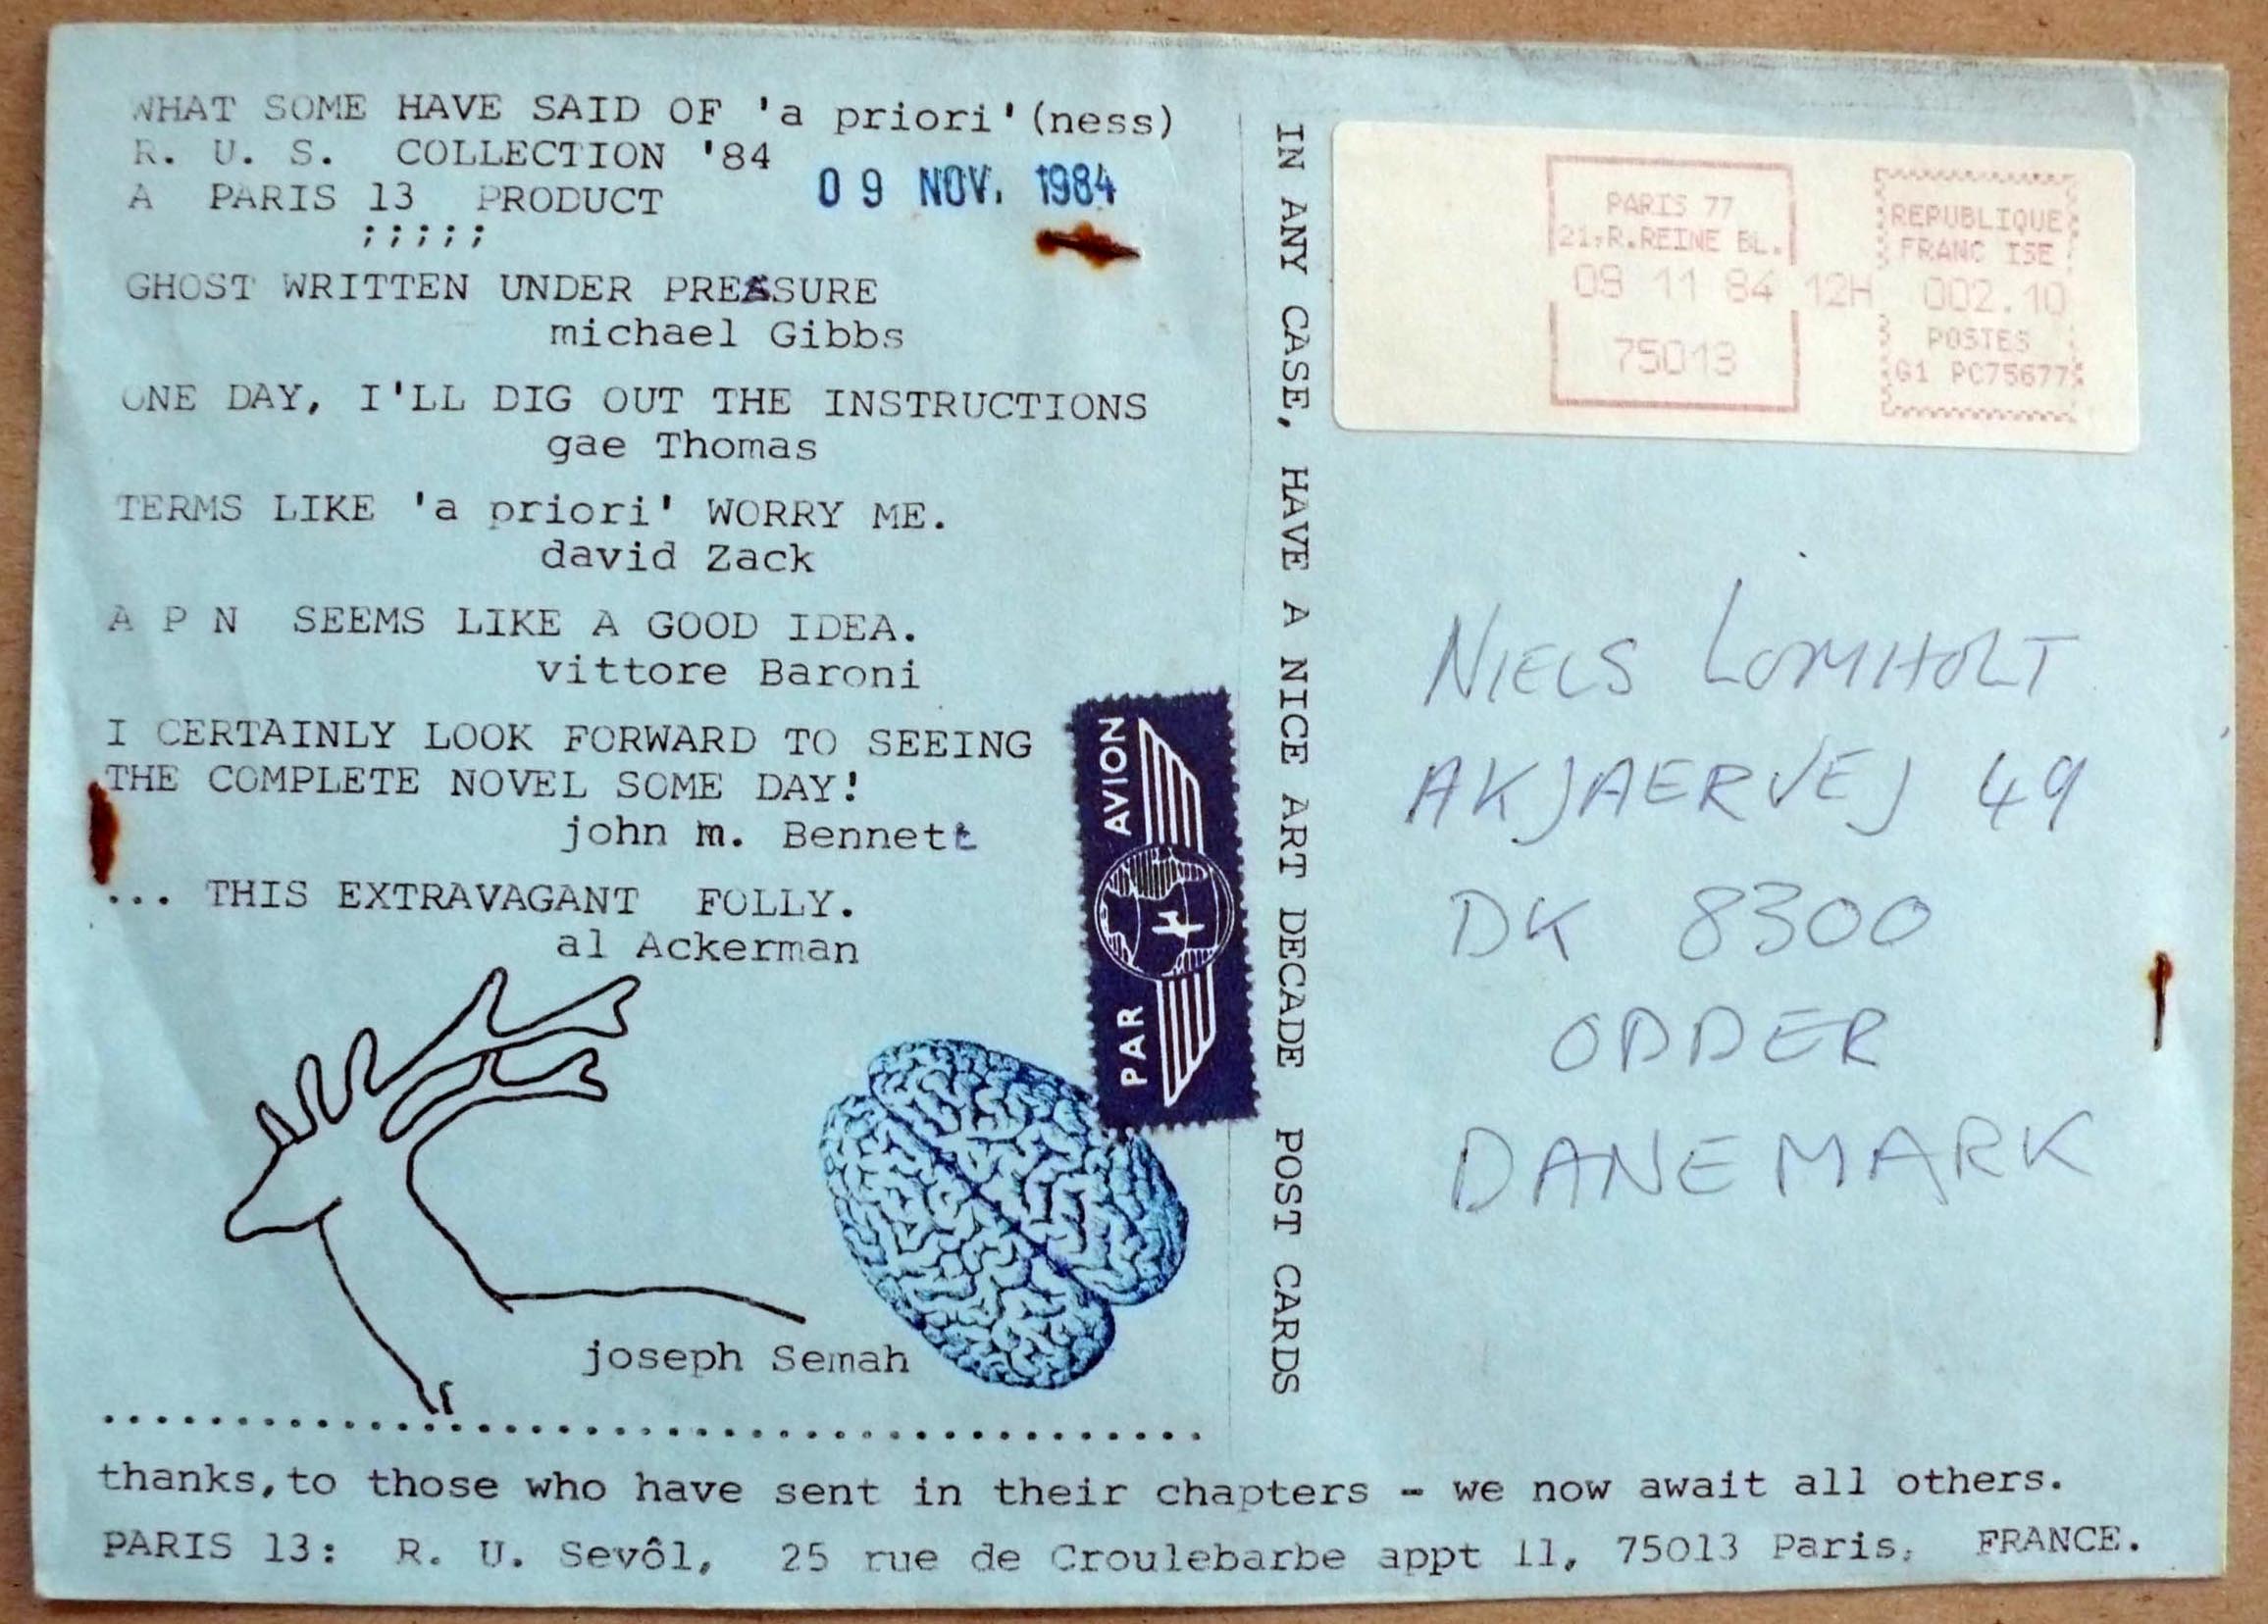 WHAT SOME HAVE SAID OF 'a priori'(ness)
R. U. S. COLLECTION '84
A PARIS 13 PRODUCT
;;;;;
09 NOV. 1984
GHOST WRITTEN UNDER PRESSURE
michael Gibbs
ONE DAY, I'LL DIG OUT THE INSTRUCTIONS
gae Thomas
TERMS LIKE 'a priori' WORRY ME.
david Zack
A P N SEEMS LIKE A GOOD IDEA.
vittore Baroni
I CERTAINLY LOOK FORWARD TO SEEING
THE COMPLETE NOVEL SOME DAY!
john m. Bennett
... THIS EXTRAVAGANT FOLLY.
al Ackerman
joseph Semah
PAR AVION
IN ANY CASE, HAVE A NICE ART DECADE POST CARDS
PARIS 77
21,R.REINE BL.
09 11 84 12H
75013
REPUBLIQUE
FRANC ISE
002.10
POSTES
G1 PC75677
NIELS LOMHOLT
AKJAERVEJ 49
DK 8300
ODDER
DANEMARK
..........................................
thanks, to those who have sent in their chapters - we now await all others.
PARIS 13: R. U. Sevôl, 25 rue de Croulebarbe appt 11, 75013 Paris, FRANCE.